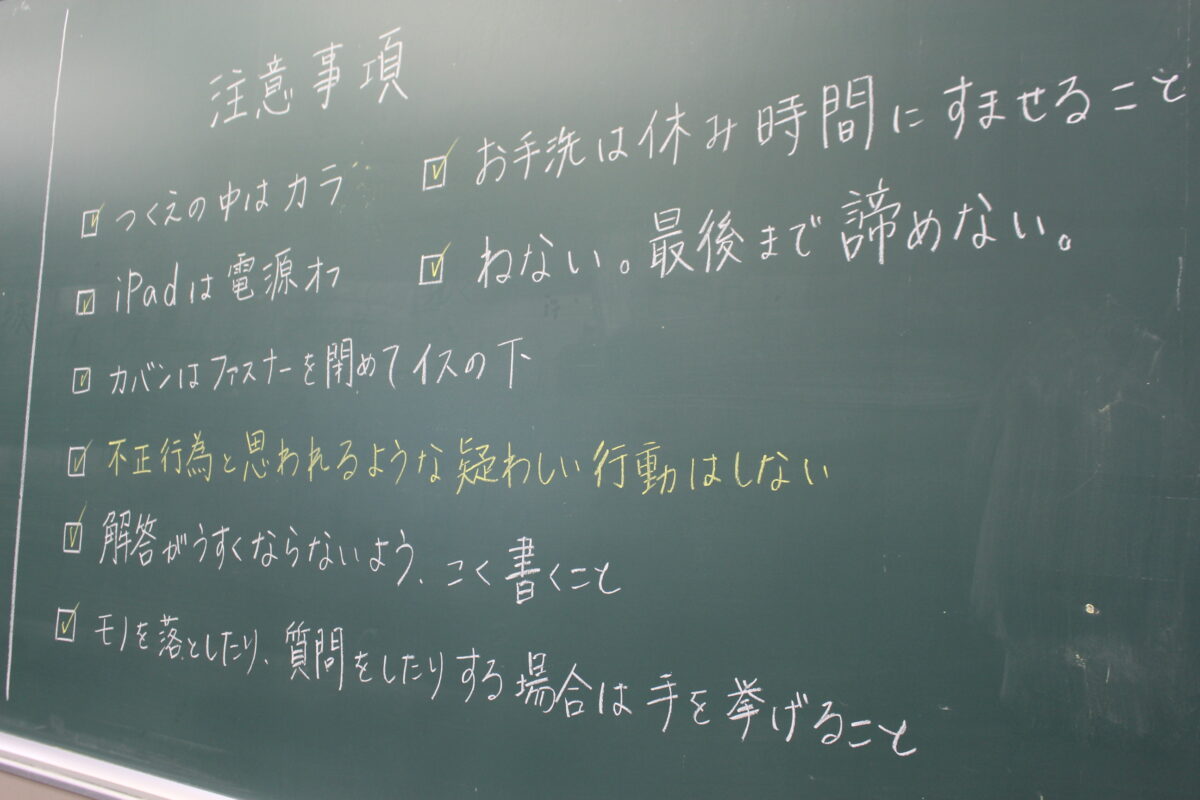 注意事項
☑ つくえの中はカラ
☑ iPadは電源オフ
☑ カバンはファスナーを閉めてイスの下
☑ 不正行為と思われるような疑わしい行動はしない
☑ 解答がうすくならないよう、こく書くこと
☑ モノを落としたり、質問をしたりする場合は手を挙げること
☑ お手洗は休み時間にすませること
☑ ねない。最後まで諦めない。